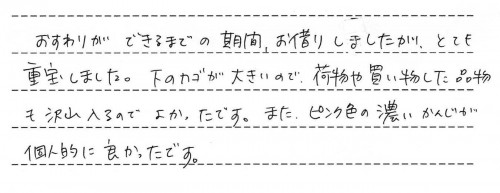 おすわりができるまでの期間、お借りしましたが、とても
重宝しました。下のカゴが大きいので、荷物や買い物した品物
も沢山入るのでよかったです。また、ピンク色の濃いかんじが
個人的に良かったです。